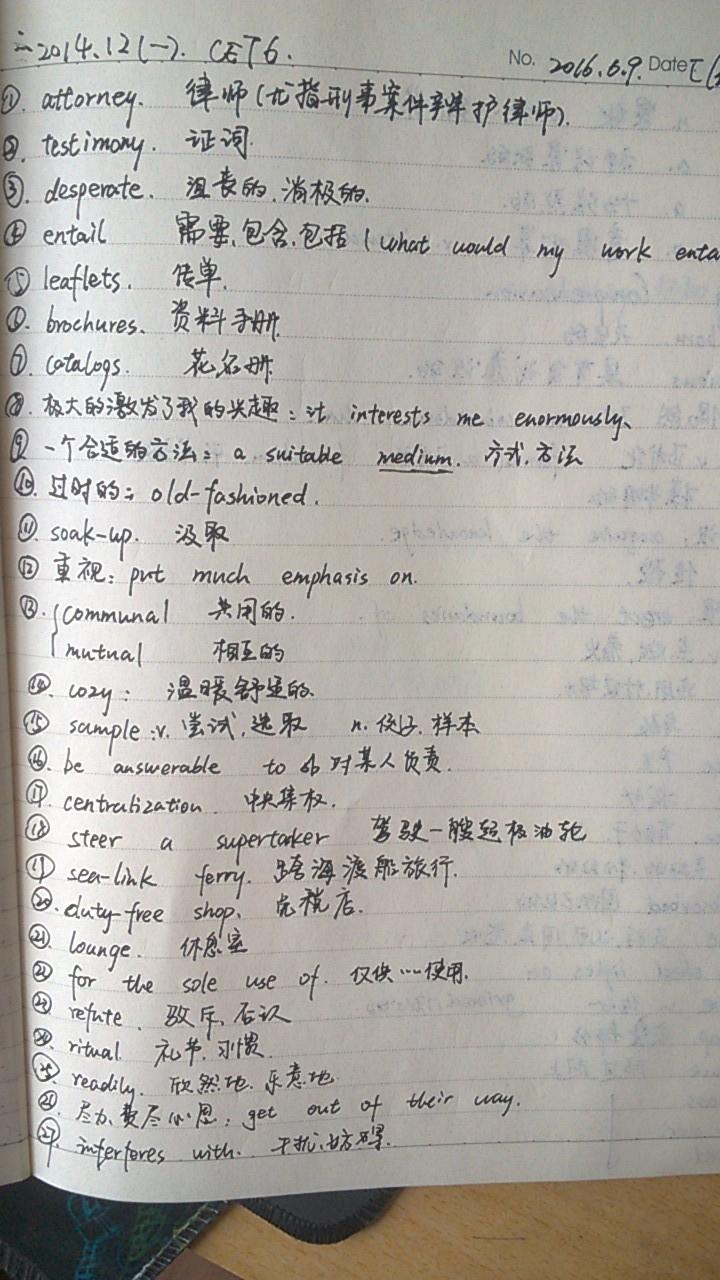 2014.12(一). CET6.
No. 2016.6.9. Date
①. attorney. 律师(尤指刑事案件辩护律师).
②. testimony. 证词.
③. desperate. 沮丧的.消极的.
④ entail 需要,包含,包括(what would my work enta
⑤ leaflets. 传单.
⑥. brochures. 资料手册.
⑦. catalogs. 花名册.
⑧. 极大的激发了我的兴趣: it interests me enormously.
⑨. 一个合适的方法: a suitable medium. 方式.方法
⑩. 过时的: old-fashioned.
⑪. soak-up. 汲取
⑫ 重视: put much emphasis on.
⑬. communal 共用的.
mutual 相互的
⑭. cozy: 温暖舒适的.
⑮ sample: v. 尝试,选取 n. 例子.样本
⑯. be answerable to sb 对某人负责.
⑰. centralization. 中央集权.
⑱ steer a supertarker 驾驶一艘超极油轮
⑲ sea-link ferry. 跨海渡船旅行.
⑳. duty-free shop. 免税店.
㉑. lounge. 休息室
㉒ for the sole use of. 仅供…使用.
㉓ refute. 驳斥,否认
㉔ ritual. 礼节.习惯.
㉕. readily. 欣然地.乐意地
㉖. 尽力,费尽心思: get out of their way.
㉗. interferes with. 干扰.妨碍.